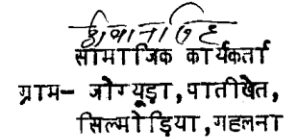 सामाजिक कार्यकर्ता
ग्राम- जोग्यूड़ा, पातीखेत,
सिल्मोड़िया, गहलना